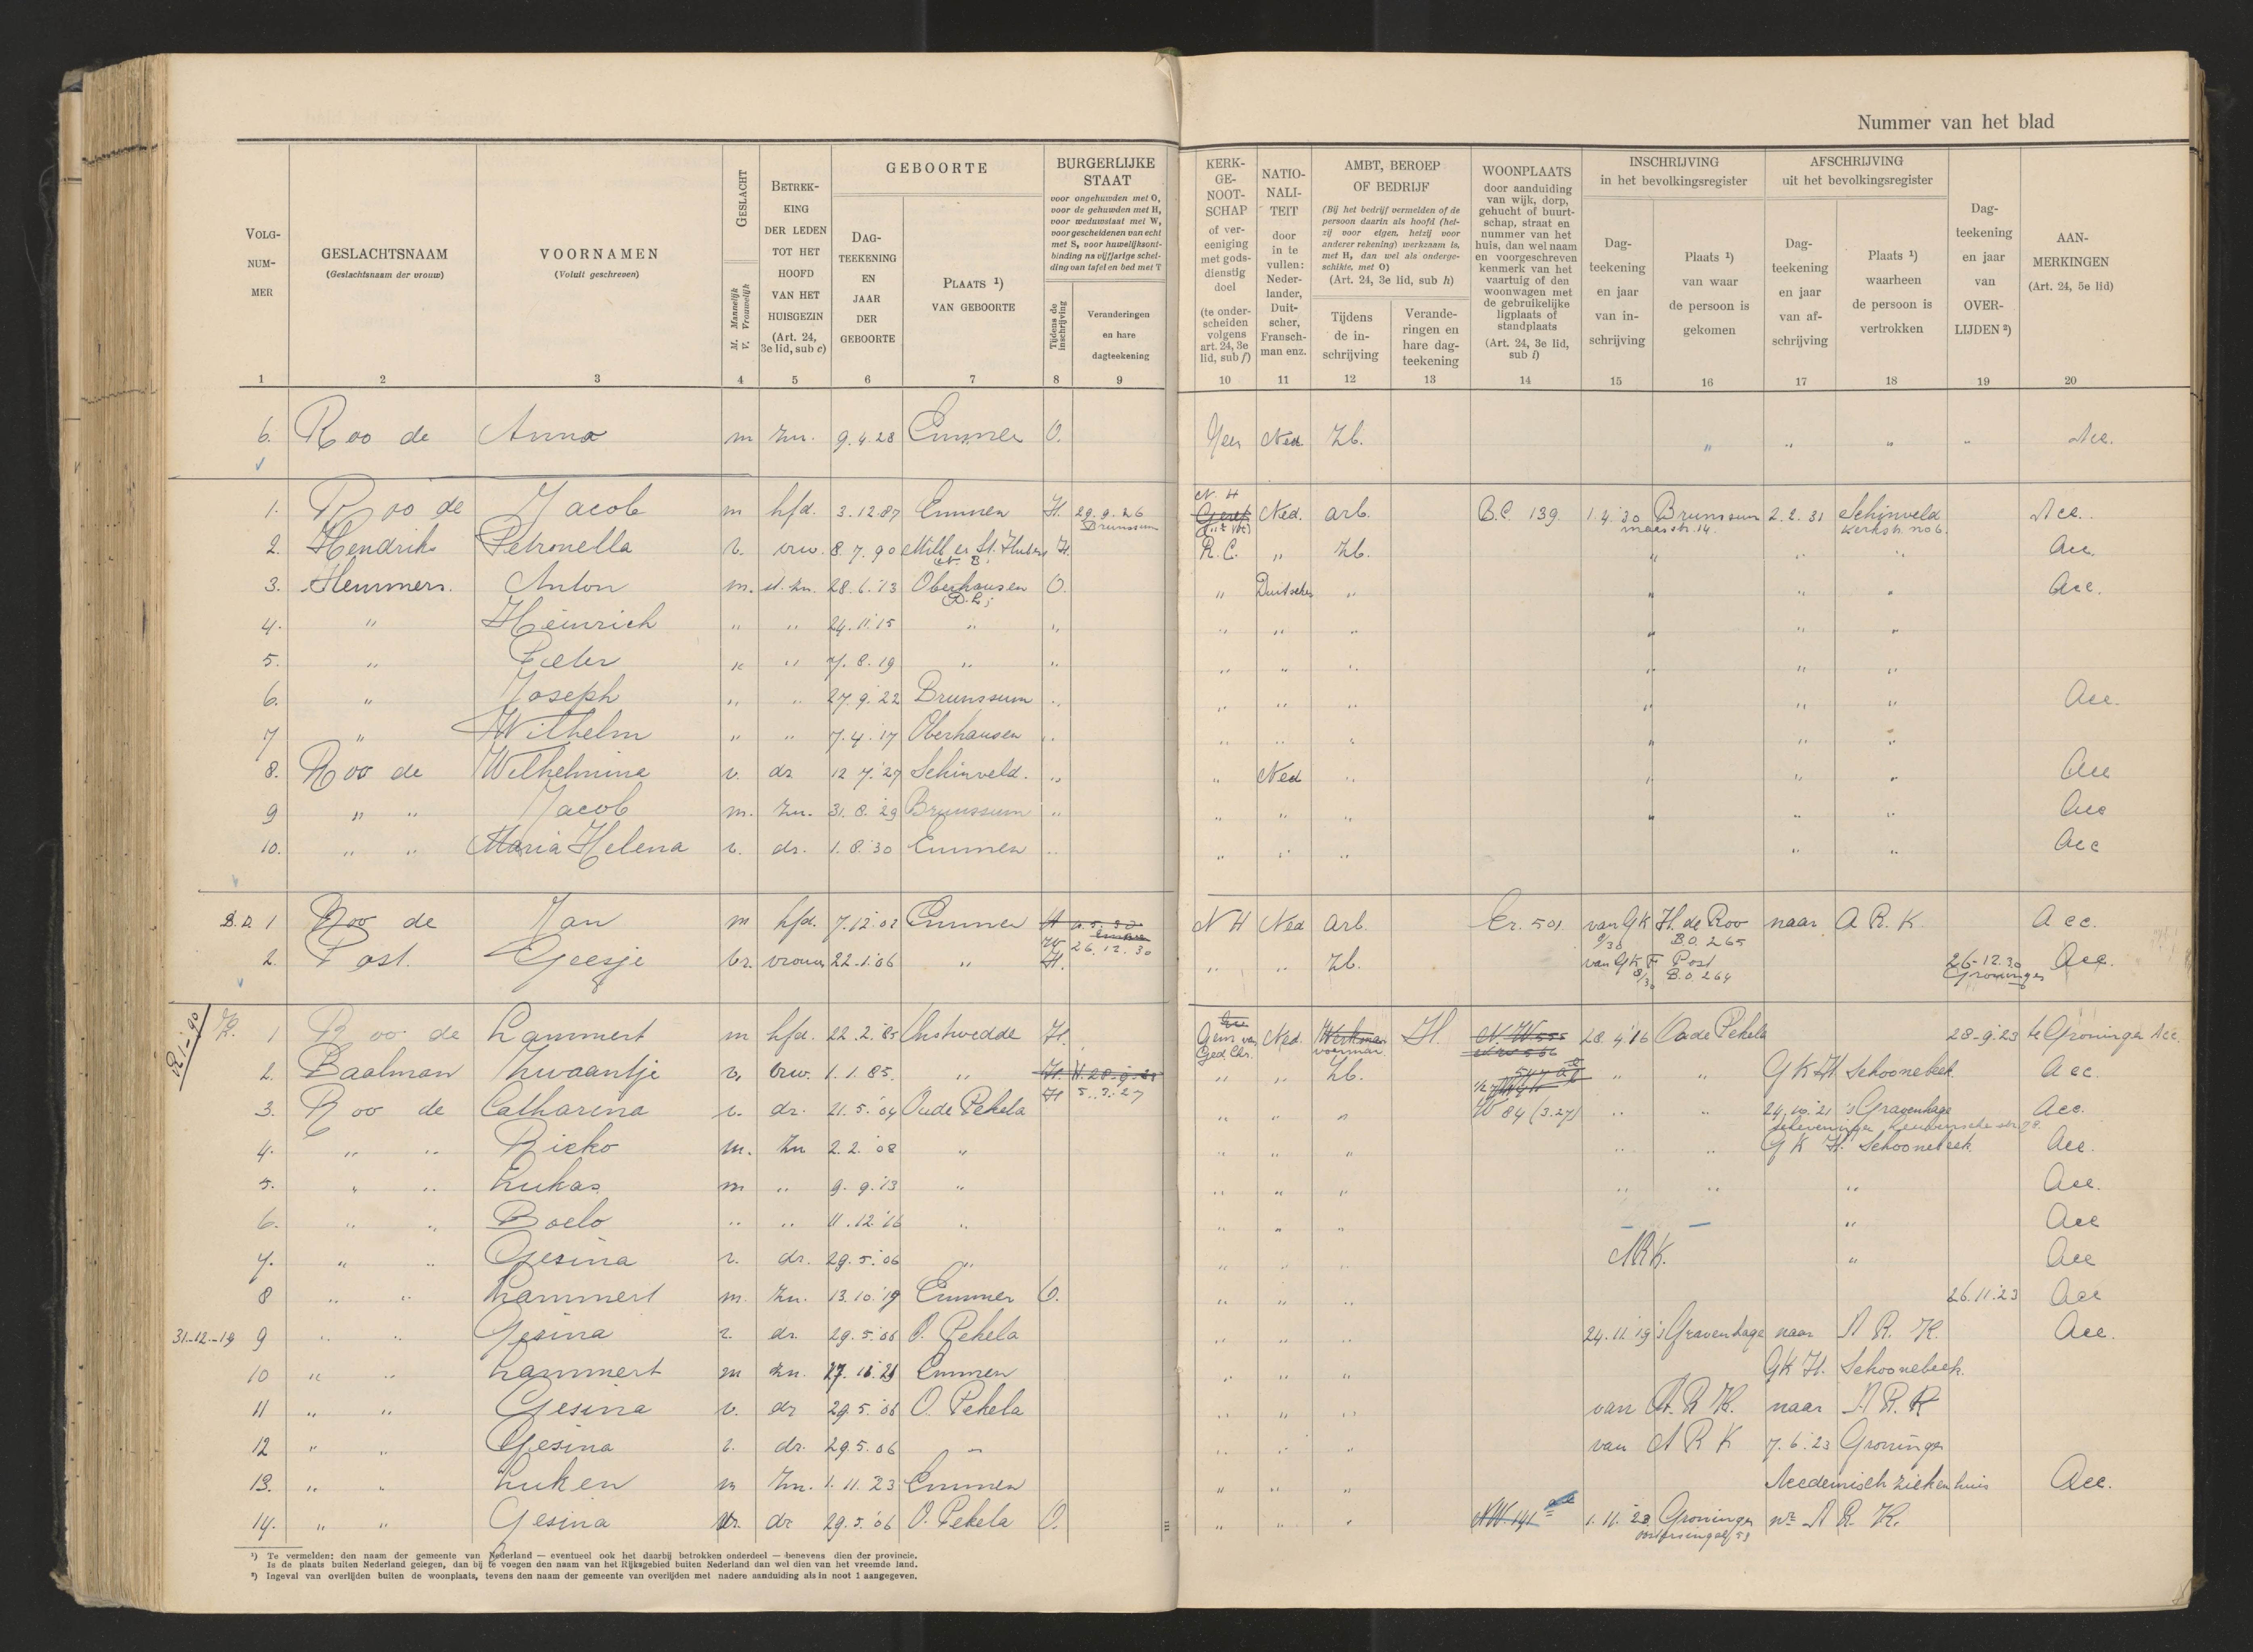 Nummer van het blad
VOLG-
NUM-
MER
GESLACHTSNAAM
(Geslachtsnaam der vrouw)
VOORNAMEN
(Voluit geschreven)
GESLACHT
M. Mannelijk
V. Vrouwelijk
BETREK-
KING
DER LEDEN
TOT HET
HOOFD
VAN HET
HUISGEZIN
(Art. 24,
3e lid, sub c)
GEBOORTE
DAG-
TEEKENING
EN
JAAR
DER
GEBOORTE
PLAATS ¹)
VAN GEBOORTE
BURGERLIJKE
STAAT
voor ongehuwden met O,
voor de gehuwden met H,
voor weduwstaat met W,
voor gescheidenen van echt
met S, voor huwelijksont-
binding na vijfjarige schei-
ding van tafel en bed met T
Tijdens de
inschrijving
Veranderingen
en hare
dagteekening
KERK-
GE-
NOOT-
SCHAP
of ver-
eeniging
met gods-
dienstig
doel
(te onder-
scheiden
volgens
art. 24, 3e
lid, sub f)
NATIO-
NALI-
TEIT
door
in te
vullen:
Neder-
lander,
Duit-
scher,
Fransch-
man enz.
AMBT, BEROEP
OF BEDRIJF
(Bij het bedrijf vermelden of de
persoon daarin als hoofd (het-
zij voor eigen, hetzij voor
anderer rekening) werkzaam is,
met H, dan wel als onderge-
schikte, met O)
(Art. 24, 3e lid, sub h)
Tijdens
de in-
schrijving
Verande-
ringen en
hare dag-
teekening
WOONPLAATS
door aanduiding
van wijk, dorp,
gehucht of buurt-
schap, straat en
nummer van het
huis, dan wel naam
en voorgeschreven
kenmerk van het
vaartuig of den
woonwagen met
de gebruikelijke
ligplaats of
standplaats
(Art. 24, 3e lid,
sub i)
INSCHRIJVING
in het bevolkingsregister
Dag-
teekening
en jaar
van in-
schrijving
Plaats ¹)
van waar
de persoon is
gekomen
AFSCHRIJVING
uit het bevolkingsregister
Dag-
teekening
en jaar
van af-
schrijving
Plaats ¹)
waarheen
de persoon is
vertrokken
Dag-
teekening
en jaar
van
OVER-
LIJDEN ²)
AAN-
MERKINGEN
(Art. 24, 5e lid)
1 2 3 4 5 6 7 8 9 10 11 12 13 14 15 16 17 18 19 20
6. Roo de Anno m zn. 9.4.28 Emmen O. Geen Ned. Zb. " " " " Acc.
1. Roo de Jacob m hfd. 3.12.87 Emmen H. 29.9.26 Brunssum N. H Geref. Ned. arb. B.C. 139. 1.4.30 Brunssum 2.2.31 Schinveld Acc.
maasstr. 14. Kerkstr. no 6.
2. Hendriks Petronella v. vrw. 8.7.90 Mill en St. Hubert H. R.C. " Zb. " " " Acc.
N. B.
3. Hemmers. Anton m. st. zn. 28.6.'13 Oberhausen O. " Duitscher " " " " Acc.
4. " Heinrich " " 24.11.'15 " " " " " " " "
5. " Peter " " 7.8.19 " " " " " " " "
6. " Joseph " " 27.9.'22 Brunssum " " " " " " " Acc.
7 " Wilhelm " " 7.4.'17 Oberhausen " " " " " " "
8. Roo de Wilhelmina v. dr 12.7.'27 Schinveld. " " Ned " " " " Acc
9 " " Jacob m. zn. 31.8.'29 Brunssum " " " " " " " Acc
10. " " Maria Helena v. dr. 1.8.'30 Emmen " " " " " " Acc
B.D. 1 Roo de Jan m hfd. 7.12.'02 Emmen H W 26.12.30 N H Ned arb. Er. 501 van GK H. de Roo naar A R. K. Acc.
B.O. 265
2. Post. Geesje vr. vrouw 22.1.'06 " H. " " Zb. van GK F Post 26-12.30 Acc.
B.O. 264 Groningen
1 Roo de Lammert m hfd. 22.2.'85 Onstwedde H. Gem van Ged Chr. Ned. Werkman voerman. H. N.W 555 28.4.'16 Oude Pekela 28-9.'23 te Groningen Acc.
2. Baalman Zwaantje v. vrw. 1.1.85. " H. H. 28-9-23 " " Zb. " " GK H Schoonebeek. Acc.
H 5.3.27
3. Roo de Catharina v. dr. 21.5.'04 Oude Pekela " " " W 84 (3.27) " " 24.10.'21 's Gravenhage Acc.
4. " " Rieko m. zn 2.2.'08 " " " " " " GK H. Schoonebeek. Acc.
5. " " Lukas. m " 9.9.'13 " " " " " " " Acc.
6. " " Boelo " " 11.12.'16 " " " " " Acc
7. " " Gesina v. dr. 29.5.'06 " " " " ARK. " Acc
8 " " Lammert m. zn. 13.10.'19 Emmen O. " " " 26.11.23 Acc
31-12-19 9 " " Gesina v. dr. 29.5.'06 O. Pekela " " " 24.11.'19 's Gravenhage naar A R. K. Acc.
10 " " Lammert m zn. Emmen " " " GK H. Schoonebeek.
11 " " Gesina v. dr 29.5.'06 O. Pekela " " " van A. R K. naar A R. K
12 " " Gesina v. dr. 29.5.06 " " " " van A R K 7.6.'23 Groningen
13. " " Luken m zn. 1.11.'23 Emmen " " " Accdemisch ziekenhuis Acc.
14. " " Gesina vr. dr 29.5.'06 O. Pekela O. " " " NW. 141 1.11.23. Groningen nr A R. K.
¹) Te vermelden: den naam der gemeente van Nederland — eventueel ook het daarbij betrokken onderdeel — benevens dien der provincie.
Is de plaats buiten Nederland gelegen, dan bij te voegen den naam van het Rijksgebied buiten Nederland dan wel dien van het vreemde land.
²) Ingeval van overlijden buiten de woonplaats, tevens den naam der gemeente van overlijden met nadere aanduiding als in noot 1 aangegeven.